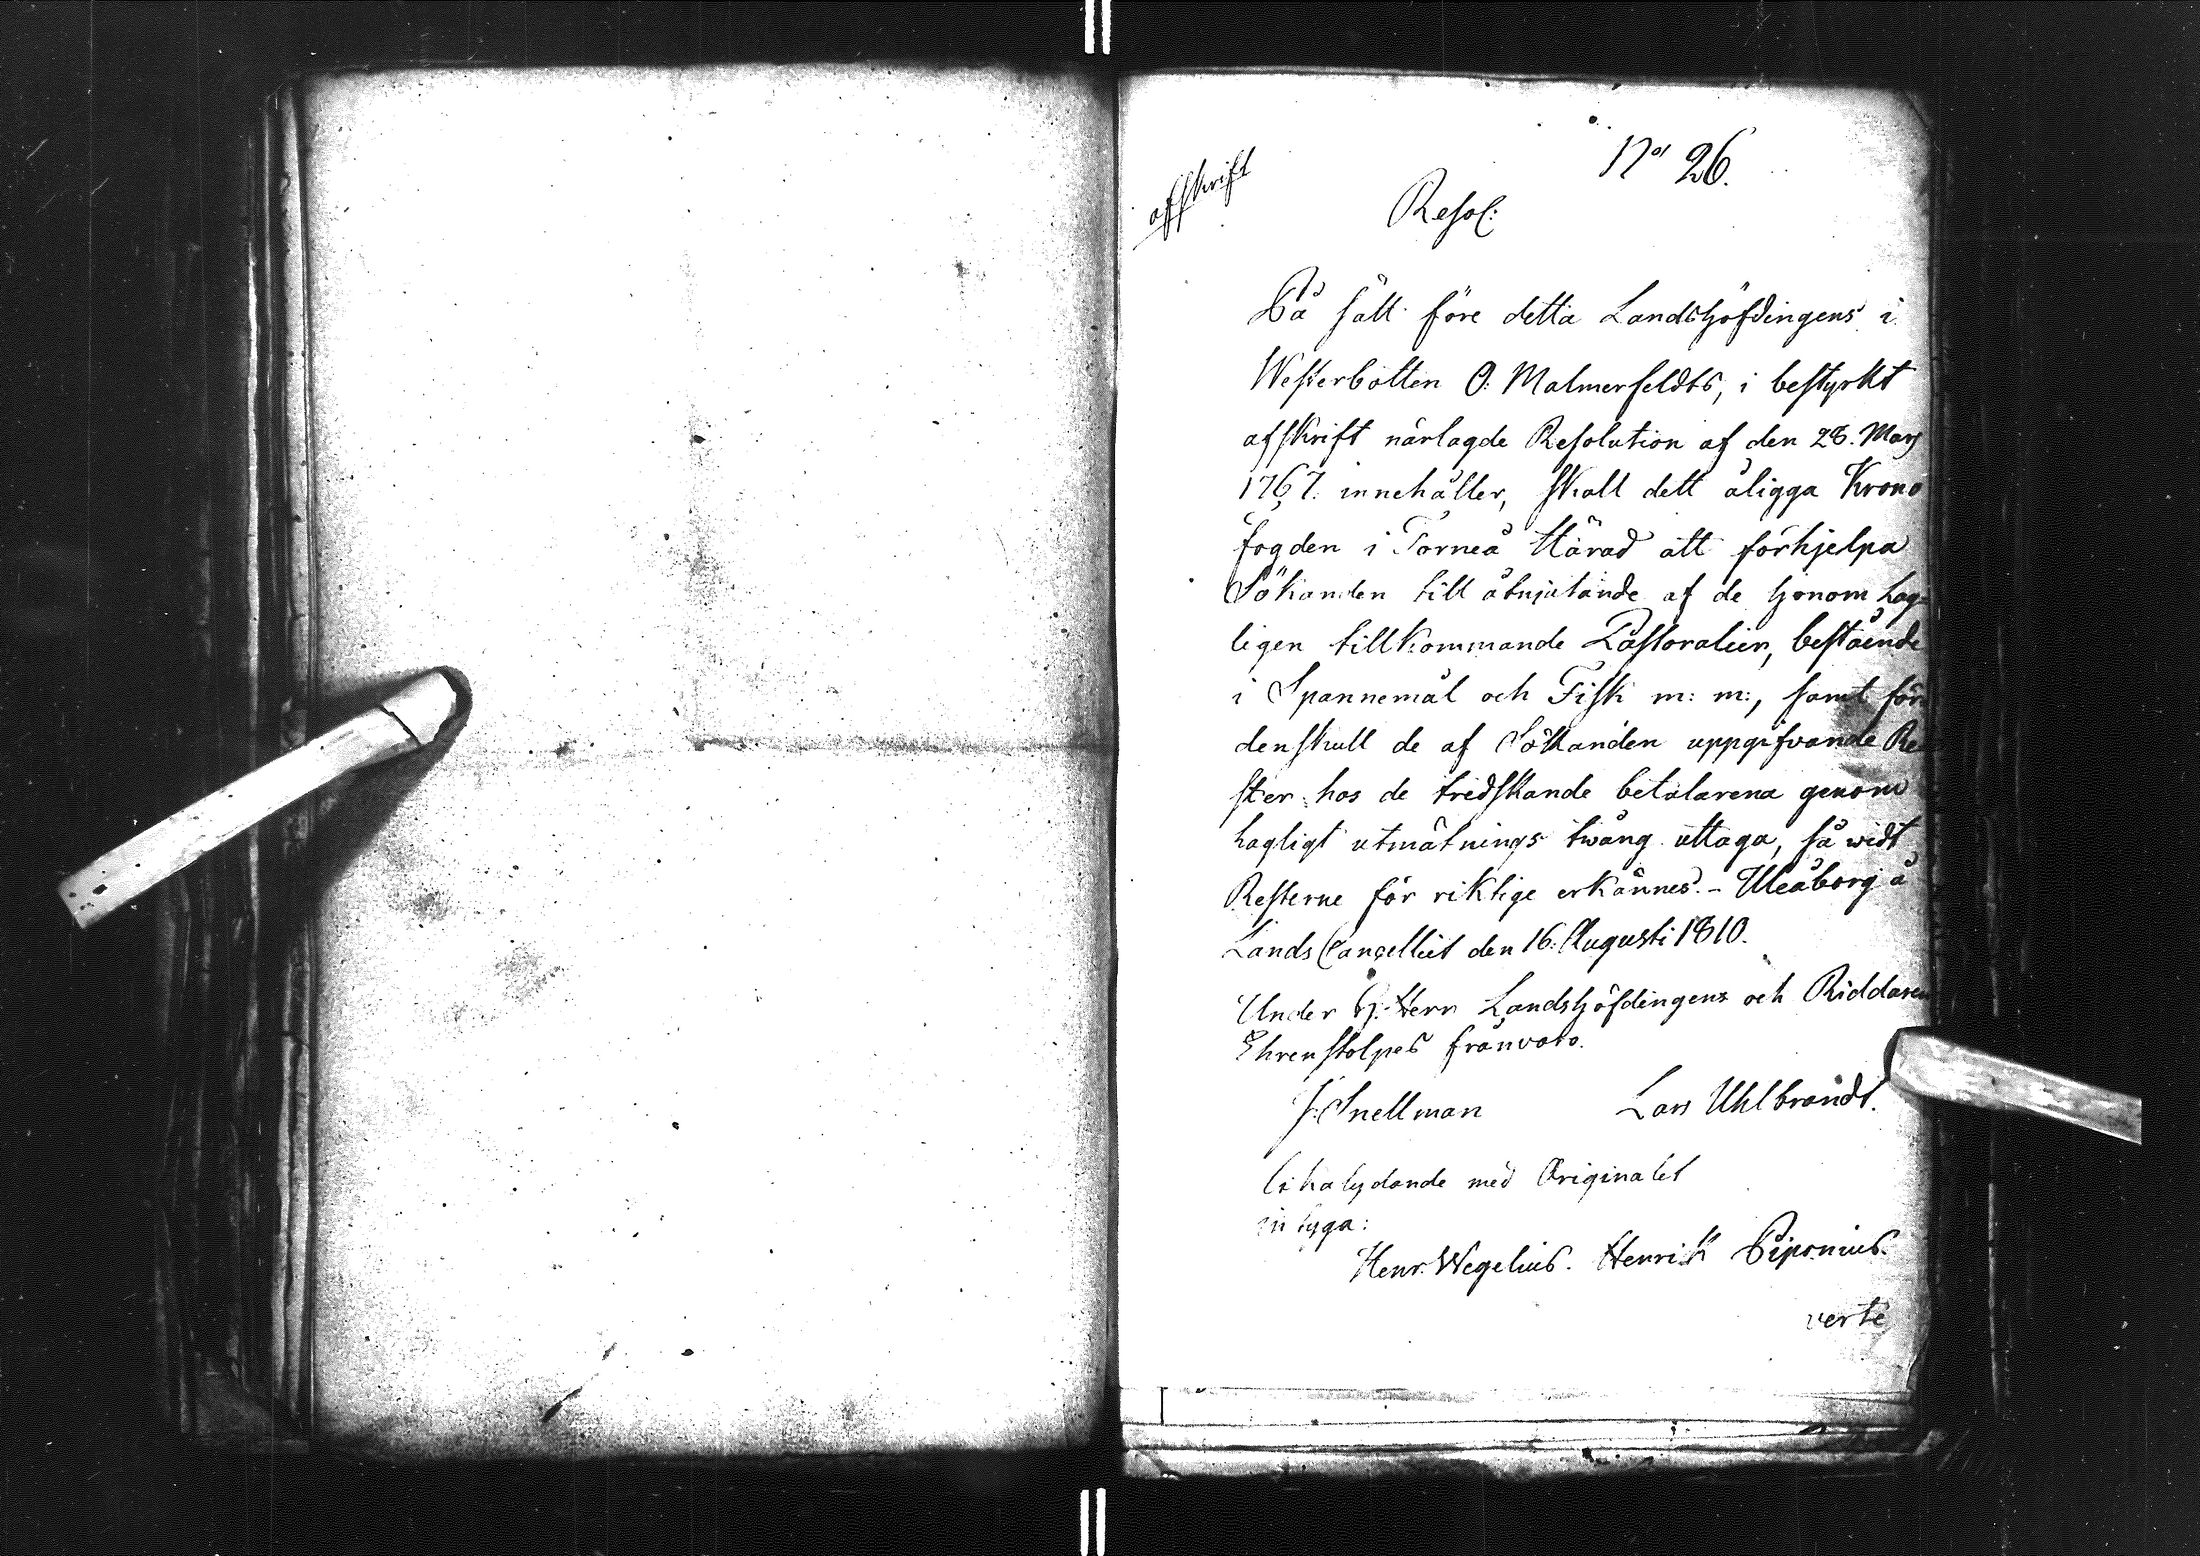 N:o 26.
afskrift
Resol:
På sätt före detta Landshöfdingens i
Westerbotten O: Malmerfeldts, i bestyrkt
afskrift närlagde Resolution af den 28. Mars
1767. innehåller, skall dett åligga Krono
fogden i Torneå Härad att förhjelpa
Sökanden till åtnjutande af de honom lag-
ligen tillkommande Pastoralier, bestående
i Spannemål och Fisk m: m:, samt för
denskull de af Sökanden uppgifvande Re
ster hos de tredskande betalarena genom
lagligt utmätnings twång uttaga, så widt
Resterne för riktige erkännes. - Uleåborg å
Lands Cancelliet den 16. Augusti 1810.
Under H. Herr Landshöfdingens och Riddaren
Ehrenstolpes frånvaro.
J. Snellman Lars Uhlbrandt.
Likalydande med Originalet
intyga:
Henr. Wegelius. Henrik Piponius.
verte